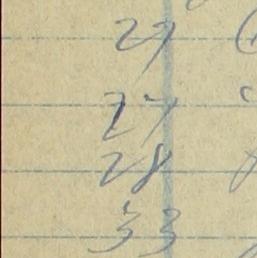 27
27
28
33